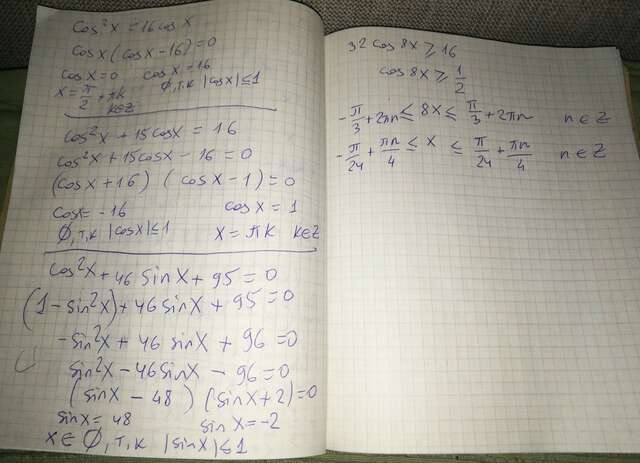 cos²x = 16 cos x
cos x (cos x - 16) = 0
cos x = 0 cos x = 16
x = π/2 + πk ∅, т.к |cos x| ≤ 1
k∈Z
cos²x + 15cosx = 16
cos²x + 15cosx - 16 = 0
(cosx + 16) (cosx - 1) = 0
cosx = -16 cosx = 1
∅, т.к |cosx| ≤ 1 x = πk k∈Z
cos²x + 46 sinx + 95 = 0
(1 - sin²x) + 46 sinx + 95 = 0
-sin²x + 46 sinx + 96 = 0
sin²x - 46 sinx - 96 = 0
(sinx - 48) (sinx + 2) = 0
sinx = 48 sinx = -2
x ∈ ∅, т.к |sinx| ≤ 1
32 cos 8x ≥ 16
cos 8x ≥ 1/2
-π/3 + 2πn ≤ 8x ≤ π/3 + 2πn n∈Z
-π/24 + πn/4 ≤ x ≤ π/24 + πn/4 n∈Z